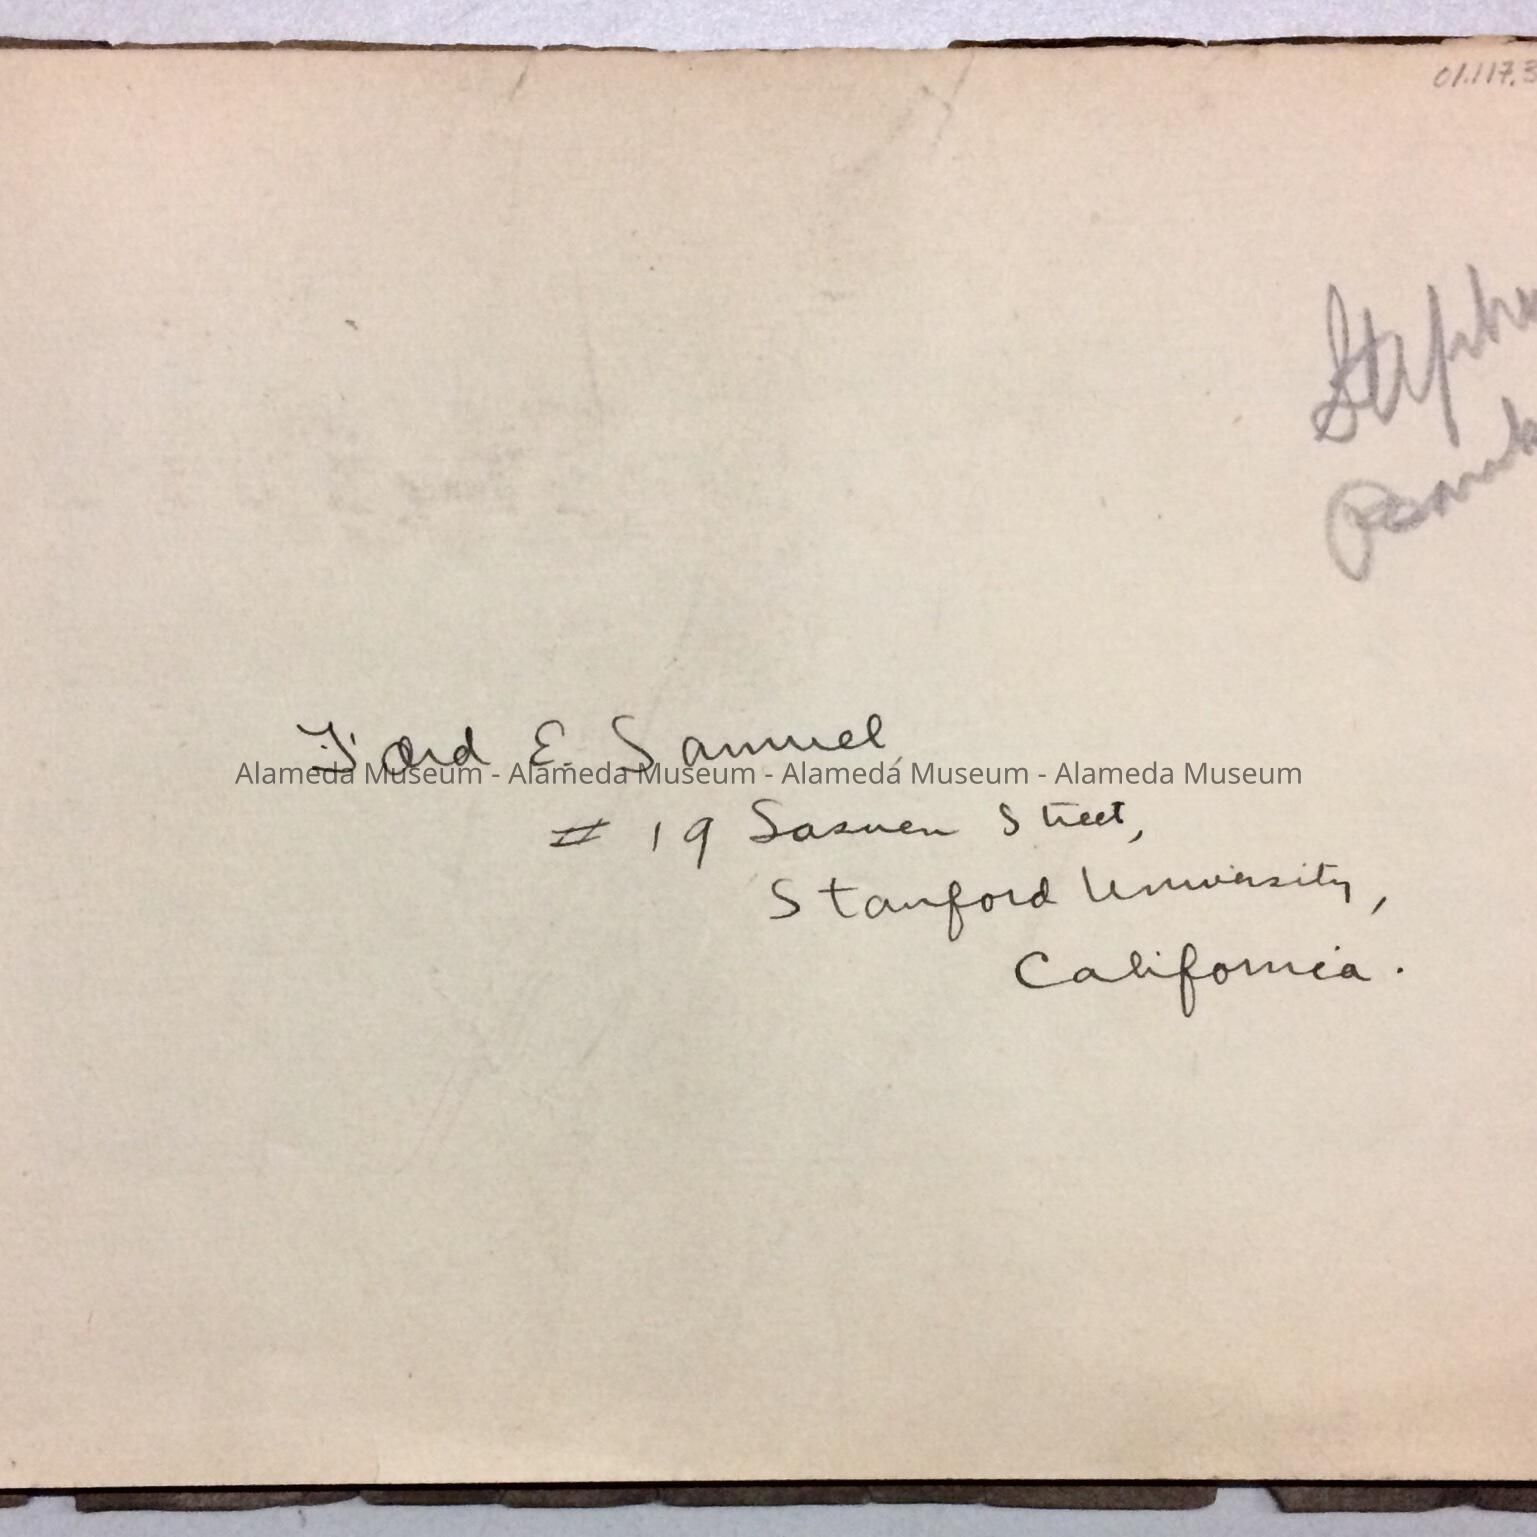 01.117.3
Ford E. Samuel,
Alameda Museum - Alameda Museum - Alameda Museum - Alameda Museum
# 19 Street,
Stanford University,
California.